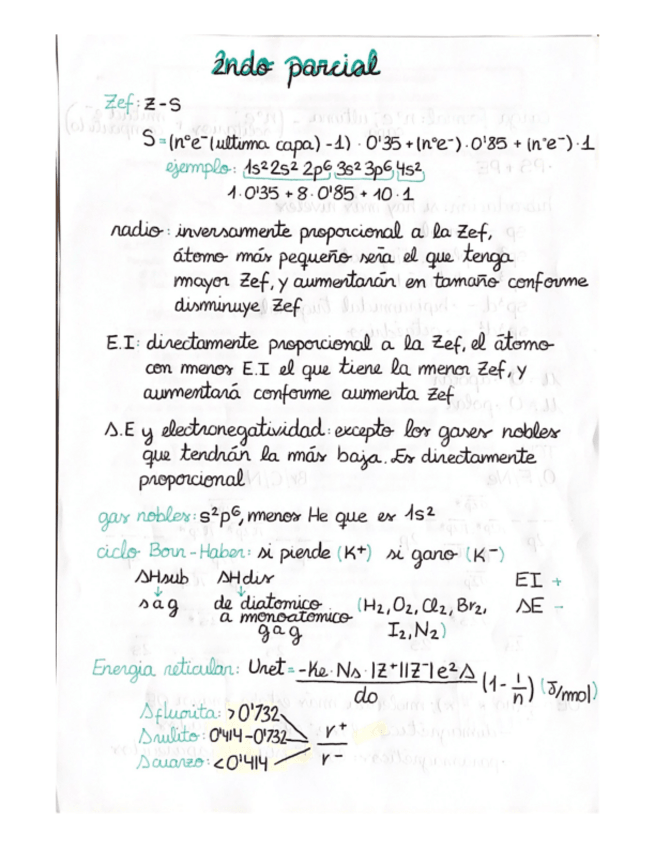 2ndo parcial
Zef: Z-S
S=(nºe⁻(ultima capa) -1) · 0'35 + (nºe⁻) · 0'85 + (nºe⁻) · 1
ejemplo: 1s2 2s2 2p6 3s2 3p6 4s2
1·0'35 + 8·0'85 + 10·1
radio: inversamente proporcional a la Zef,
átomo más pequeño sería el que tenga
mayor Zef, y aumentarán en tamaño conforme
disminuye Zef
E.I: directamente proporcional a la Zef, el átomo
con menos E.I el que tiene la menor Zef, y
aumentará conforme aumenta Zef
Δ.E y electronegatividad: excepto los gases nobles
que tendrán la más baja. Es directamente
proporcional
gas nobles: s²p⁶, menos He que es 1s²
ciclo Born-Haber: si pierde (K⁺) si gano (K⁻)
ΔHsub ΔHdis EI +
s a g de diatomico (H₂, O₂, Cl₂, Br₂, ΔE -
a monoatómico I₂, N₂)
g a g
Energia reticular: Uret = -Ke · Na · |Z⁺||Z⁻| e² A / do (1 - 1/n) (J/mol)
Afluorita: >0'732
Arulito: 0'414-0'732 r⁺/r⁻
Acuarzo: <0'414